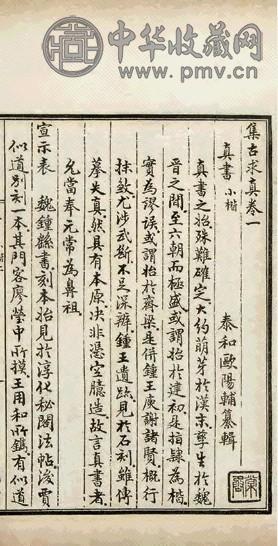 中华收藏网
www.pmv.cn
集古求真卷一
真書 小楷
泰和歐陽輔纂輯
真書之始殊難確定大約萌芽於漢末孳生於魏
晉之間至六朝而極盛或謂始於建初是指隸為楷
實為謬誤或謂始於齊梁是併鍾王庾謝諸賢概行
抹煞尤涉武斷不足深辨鍾王遺跡見於石刻雖傳
摹失真然具有本原決非憑空臆造故言真書者
允當奉元常為鼻祖
宣示表 魏鍾繇書刻本始見於淳化秘閣法帖後賈
似道別刻一本其門客廖瑩中所摸王用和所鐫有似道